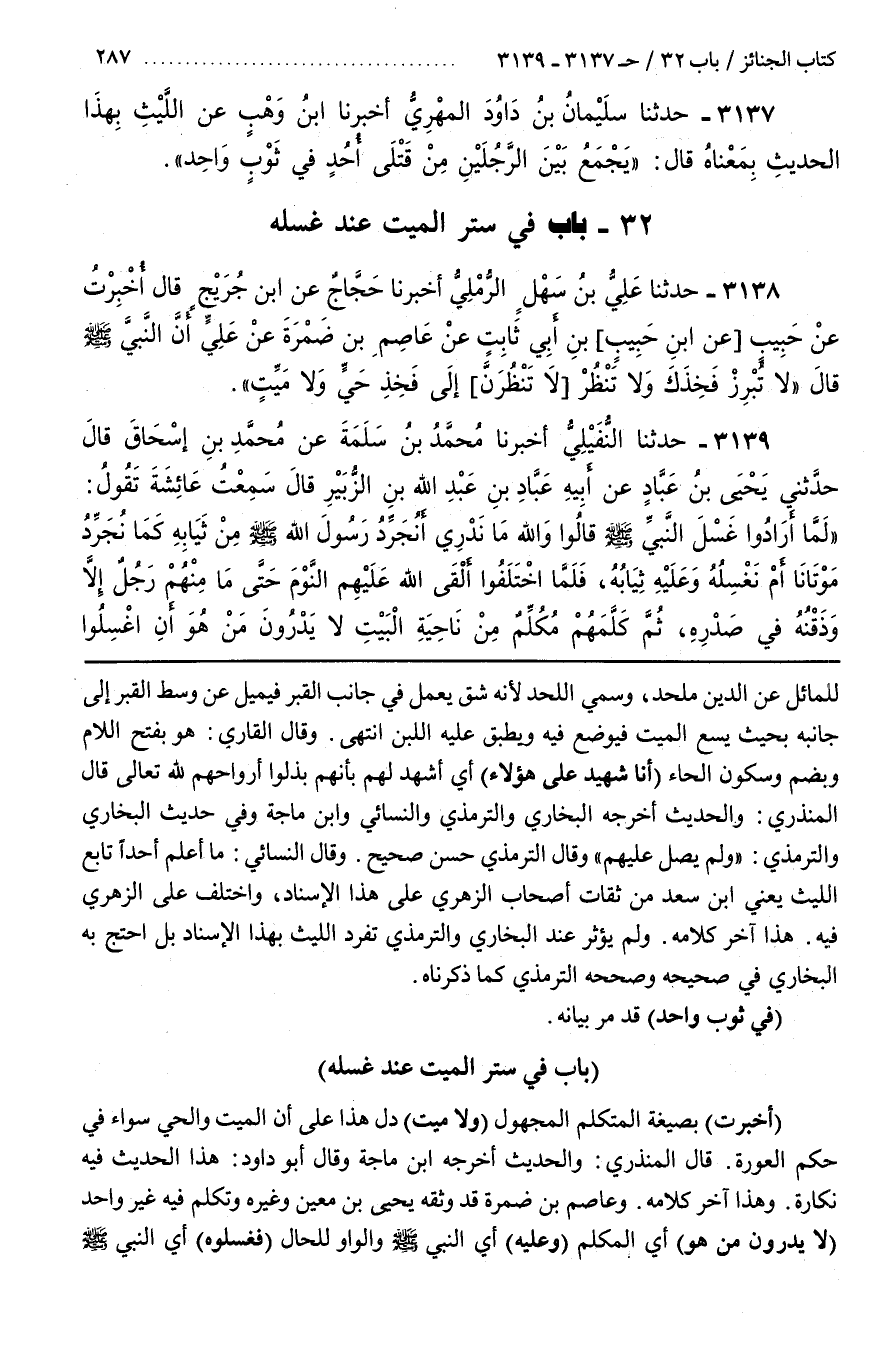 كتاب الجنائز / باب ٣٢ / حـ ٣١٣٧ ـ ٣١٣٩ ..................................... ٢٨٧
٣١٣٧ ـ حدثنا سلَيْمانُ بنُ دَاوُدَ المهْرِيُّ أخبرنا ابنُ وَهْبٍ عن اللَّيْثِ بِهذَا
الحديثِ بِمَعْناهُ قال: «يَجْمَعُ بَيْنَ الرَّجُلَيْنِ مِنْ قَتْلَى أُحُدٍ في ثَوْبٍ وَاحِد».
٣٢ ـ باب في ستر الميت عند غسله
٣١٣٨ ـ حدثنا عَلِيُّ بنُ سَهْلٍ الرَّمْلِيُّ أخبرنا حَجَّاجٌ عن ابن جُرَيْجٍ قال أُخْبِرْتُ
عنْ حَبِيبٍ [عن ابنِ حَبِيبٍ] بنِ أَبِي ثَابِتٍ عنْ عَاصِمِ بن ضَمْرَةَ عنْ عَلِيٍّ أَنَّ النَّبيَّ ﷺ
قالَ «لا تُبْرِزْ فَخِذَكَ وَلا تَنْظُرْ [لَا تَنْظُرَنَّ] إلَى فَخِذِ حَيٍّ وَلا مَيِّتٍ».
٣١٣٩ ـ حدثنا النُّفَيْلِيُّ أخبرنا مُحمَّدُ بنُ سَلَمَةَ عن مُحمَّدِ بنِ إسْحَاقَ قالَ
حدَّثني يَحْيَى بنُ عَبَّادٍ عن أَبِيهِ عَبَّادِ بنِ عَبْدِ الله بنِ الزُّبَيْرِ قالَ سَمِعْتُ عَائِشَةَ تَقُولُ:
«لَمَّا أَرَادُوا غَسْلَ النَّبيِّ ﷺ قالُوا وَالله مَا نَدْرِي أَنُجَرِّدُ رَسُولَ الله ﷺ مِنْ ثَيَابِهِ كَمَا نُجَرِّدُ
مَوْتَانَا أَمْ نَغْسِلُهُ وَعَلَيْهِ ثِيَابُهُ، فَلَمَّا اخْتَلَفُوا أَلْقَى الله عَلَيْهِم النَّوْمَ حَتَّى مَا مِنْهُمْ رَجُلٌ إلَّا
وَذَقْنُهُ في صَدْرِهِ، ثُمَّ كَلَّمَهُمْ مُكَلِّمٌ مِنْ نَاحِيَةِ الْبَيْتِ لا يَدْرُونَ مَنْ هُوَ أَنِ اغْسِلُوا
للمائل عن الدين ملحد، وسمي اللحد لأنه شق يعمل في جانب القبر فيميل عن وسط القبر إلى
جانبه بحيث يسع الميت فيوضع فيه ويطبق عليه اللبن انتهى. وقال القاري: هو بفتح اللام
وبضم وسكون الحاء (أنا شهيد على هؤلاء) أي أشهد لهم بأنهم بذلوا أرواحهم لله تعالى قال
المنذري: والحديث أخرجه البخاري والترمذي والنسائي وابن ماجة وفي حديث البخاري
والترمذي: «ولم يصل عليهم» وقال الترمذي حسن صحيح. وقال النسائي: ما أعلم أحداً تابع
الليث يعني ابن سعد من ثقات أصحاب الزهري على هذا الإسناد، واختلف على الزهري
فيه. هذا آخر كلامه. ولم يؤثر عند البخاري والترمذي تفرد الليث بهذا الإسناد بل احتج به
البخاري في صحيحه وصححه الترمذي كما ذكرناه.
(في ثوب واحد) قد مر بيانه.
(باب في ستر الميت عند غسله)
(أخبرت) بصيغة المتكلم المجهول (ولا ميت) دل هذا على أن الميت والحي سواء في
حكم العورة. قال المنذري: والحديث أخرجه ابن ماجة وقال أبو داود: هذا الحديث فيه
نكارة. وهذا آخر كلامه. وعاصم بن ضمرة قد وثقه يحيى بن معين وغيره وتكلم فيه غير واحد
(لا يدرون من هو) أي المكلم (وعليه) أي النبي ﷺ والواو للحال (فغسلوه) أي النبي ﷺ